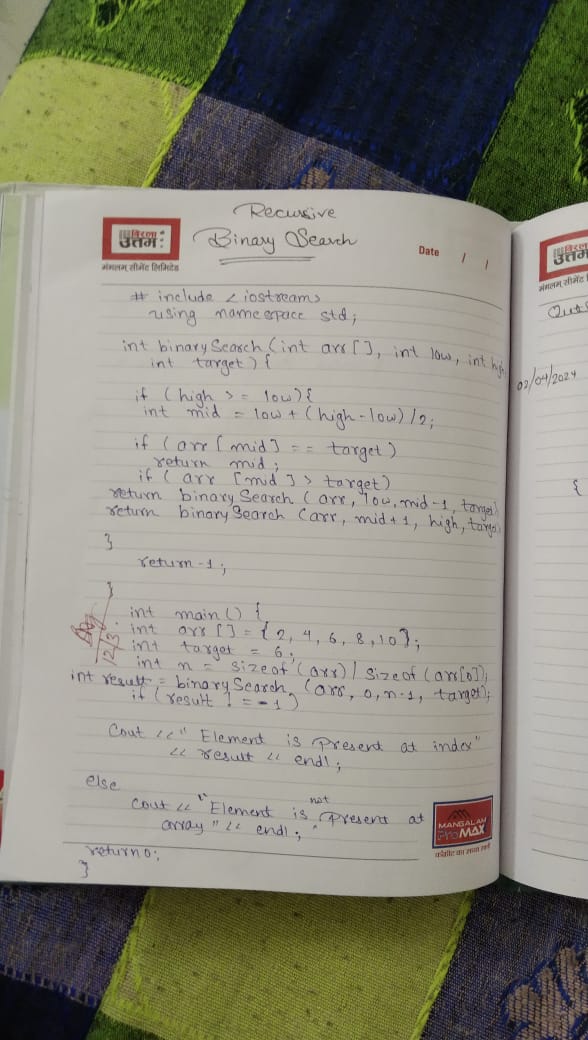 Recursive
Binary Search
बिरला
उत्तम
मंगलम् सीमेंट लिमिटेड
Date / /
# include <iostream>
using namespace std;
int binarySearch (int arr[], int low, int high
int target) {
if (high >= low) {
int mid = low + (high - low) /2;
if (arr [mid] == target)
return mid;
if (arr [mid] > target)
return binarySearch (arr, low, mid-1, target)
return binarySearch (arr, mid+1, high, target)
}
return -1;
}
int main() {
int arr [] = {2, 4, 6, 8, 10};
int target = 6;
int n = sizeof (arr) / sizeof (arr[0]);
int result = binarySearch (arr, 0, n-1, target);
if (result ! = -1)
Cout << " Element is Present at index"
<< result << endl;
else
Cout << "Element is not Present at
array" << endl;
return 0;
}
12/3
MANGALAM
ProMAX
बिरला
उत्तम
मंगलम् सीमेंट
02/04/2024
{